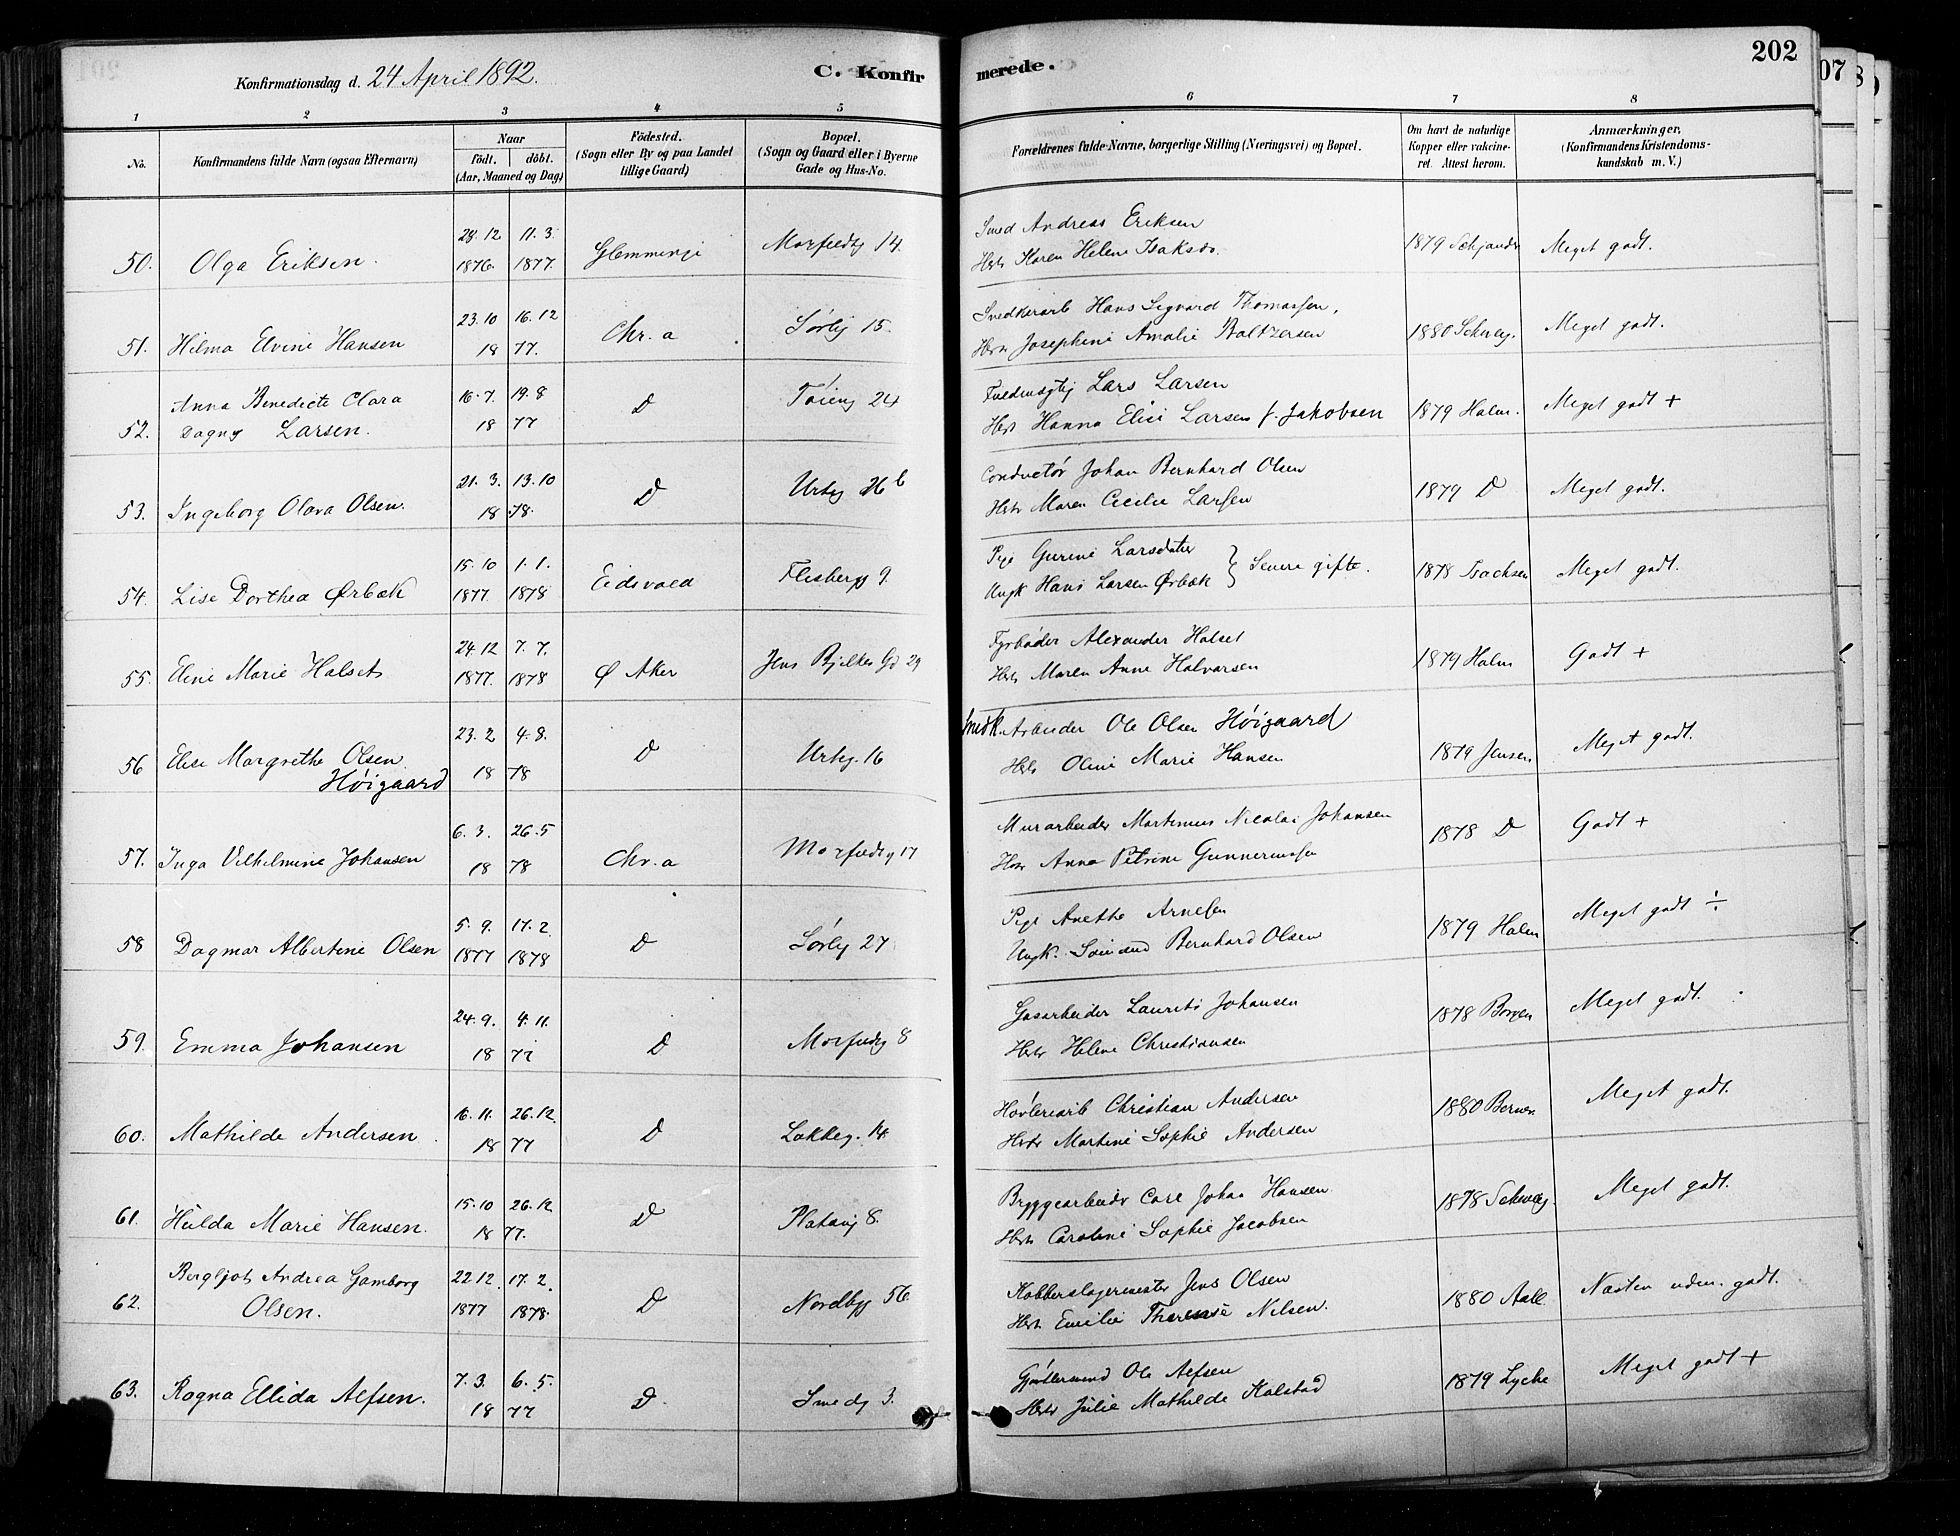 202
Konfirmationsdag d. 24 April 1892.
C. Konfir
merede.
1 2 3 4 5 6 7 8
No.
Konfirmandens fulde Navn (ogsaa Efternavn)
Naar
født. døbt.
(Aar, Maaned og Dag)
Fødested.
(Sogn eller By og paa Landet
tillige Gaard)
Bopæl.
(Sogn og Gaard eller i Byerne
Gade og Hus-No.
Forældrenes fulde Navne, borgerlige Stilling (Næringsvei) og Bopæl.
Om havt de naturlige
Kopper eller vakcine-
ret. Attest herom.
Anmærkninger,
(Konfirmandens Kristendoms-
kundskab m. V.)
28. 12 11. 3. Smed Andreas Eriksen
50. Olga Eriksen. 1876. 1877. Glemminge 14. Karen Helene Isaksd. 1879 Meget godt.
23. 10 16. 12 Hans Sigvard Thomassen,
51. Hilma Elvine Hansen 18 77. Chr. a Sørlig 15. Josephine Amalie Baltzersen 1880 Schwag. Meget godt.
Anna Benedicte Clara 16. 7. 19. 8 Lars Larsen
52. Dagny Larsen. 18 77 D Tøieng 24 Hanna Elise Larsen f. Jakobsen 1879 Holm. Meget godt +
21. 3. 13. 10 Conductør Johan Bernhard Olsen
53. Ingeborg Olava Olsen. 18 78. D Urteg 26 b Maren Cecilie Larsen 1879 D Meget godt.
15. 10 1. 1. Pige Gurine Larsdatter
54. Lise Dorthea Ørbæk 1877. 1878 Eidsvold Flesbergg 9. Ungk Hans Larsen Ørbæk } Senere gifte. 1878 Isachsen Meget godt.
24. 12 7. 7. Fyrbøder Alexander Halset
55. Eline Marie Halset 1877. 1878 Ø Aker Jens Bjelkes Gd 29 Maren Anne Halvorsen 1879 Holm Godt +
23. 2 4. 8. Smedk. Arbeider Ole Olsen Høigaard
56 Elise Margrethe Olsen 18 78 D Urteg. 16 Oline Marie Hansen 1879 Jensen Meget godt.
Høigaard
6. 3. 26. 5 Murarbeider Martinus Nicolai Johansen
57. Inga Vilhelmine Johansen 18 78 Chr. a 17 Anna Petrine Gunnerussen 1878 D Godt +
5. 9. 17. 2. Pige Anette Arnesen
58 Dagmar Albertine Olsen 1877 1878 D Sørlig 27 Ungk. Sømand Bernhard Olsen 1879 Holm Meget godt ÷
24. 9. 4. 11. Gasarbeider Laurits Johansen
59. Emma Johansen 18 77 D 8 Helene Christiansen 1878 Borgen Meget godt.
16. 11. 26. 12. Høvleriarb Christian Andersen
60. Mathilde Andersen 18 77 D Lakkeg. 14 Martine Sophie Andersen 1880 Meget godt.
15. 10 26. 12. Bryggearbeider Carl Johan Hansen
61. Hulda Marie Hansen. 18 77. D Platoug 8. Caroline Sophie Jacobsen 1878 Schwag. Meget godt.
Bergljot Andrea Gamborg 22 12. 17. 2. Kobberslagermester Jens Olsen
62. Olsen. 1877 1878. D Nordbyg 56 Emilie Therese Nilsen. 1880 Aall Næsten udm. godt.
7. 3. 6. 5. Gjørtlersvend Ole Alfsen
63. Ragna Ellida Alfsen. 18 77 D. Smedg 3. Julie Mathilde Kalstad 1879 Lyche Meget godt +